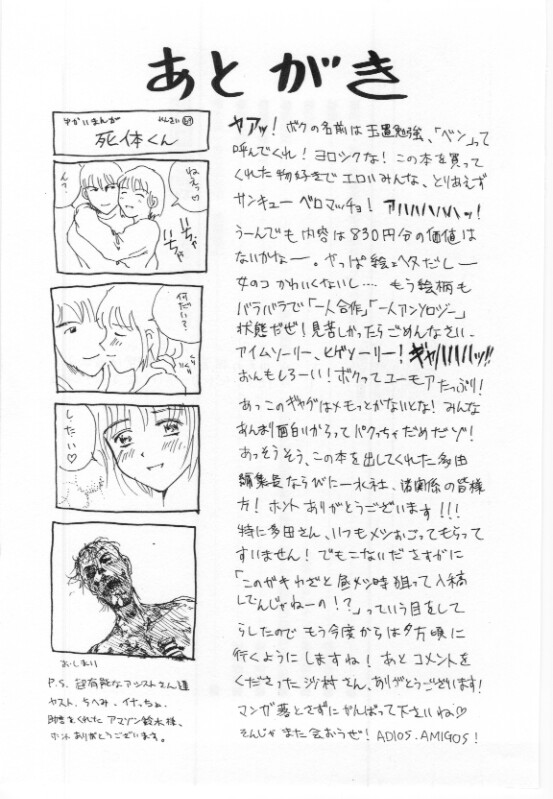 あとがき
ゆかいまんが
死体くん
ねぇ♡
ん?
いちゃ
いちゃ
何だい?
したい♡
おしまい
P.S. 超有能なアシストさん達
ヤスト、ちへみ、イナっちぁ、
助言をくれた アマゾン鈴木様、
ホントありがとうございます。
ヤアッ! ボクの名前は玉置勉強、「ベン」って
呼んでくれ! ヨロシクな! この本を買って
くれた物好きでエロいみんな、とりあえず
サンキューベロマッチョ! アハハハハハッ!
うーんでも内容は830円分の価値は
ないかなー。やっぱ絵ェヘタだしー
女のコかわいくないし…. もう絵柄も
バラバラで「一人合作」「一人アンソロジー」
状態だぜ! 見苦しかったらごめんなさい、
アイムソーリー、ヒゲソーリー! ギャハハハハッ!!
おんもしろーい! ボクってユーモアたっぷり!
あっこのギャグはメモっとかないとな! みんな
あんまり面白いからってパクっちゃだめだゾ!
あっそうそう、この本を出してくれた多田
編集長ならびに一水社、諸関係の皆様
方! ホントありがとうございます!!!
特に多田さん、いつもメシおごってもらって
すいません! でもこないださすがに
「このガキわざと昼メシ時狙って入稿
してんじゃねーの!?」っていう目をして
らしたので もう今度からは夕方頃に
行くようにしますね! あとコメントを
くださった沙村さん、ありがとうございます!
マンガ落とさずにがんばって下さいね♡
そんじゃまた会おうぜ! ADIOS.AMIGOS!